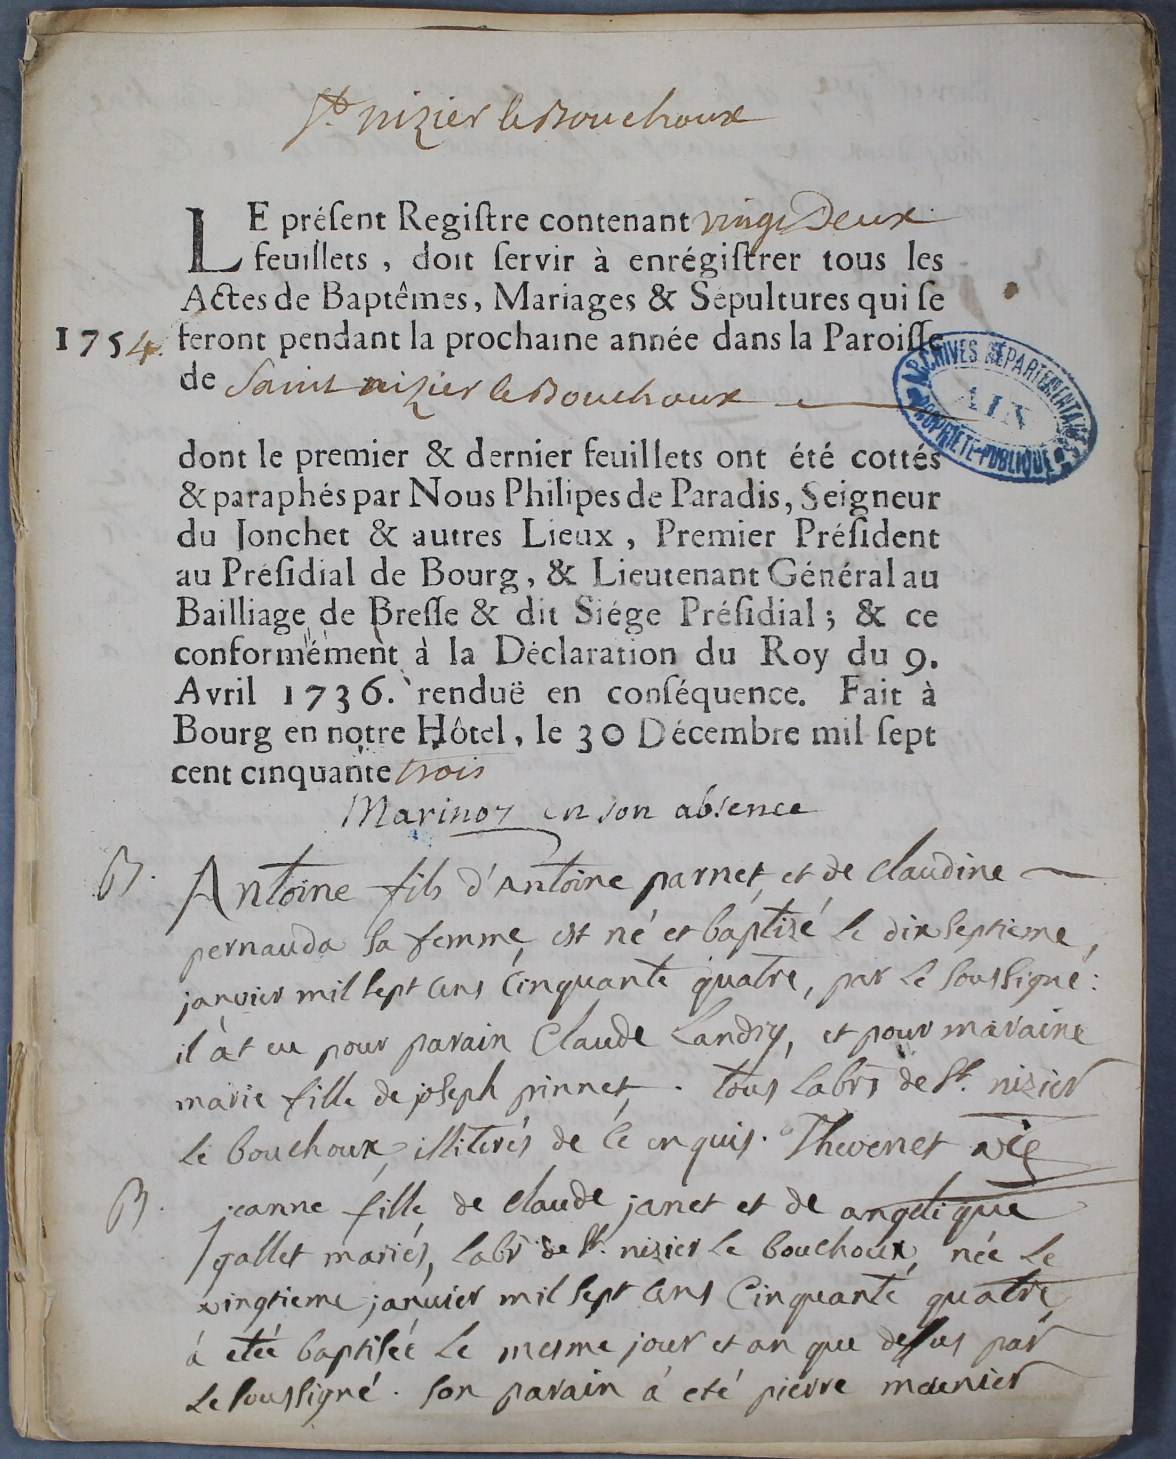 St. nizier le Bouchoux
LE préſent Regiſtre contenant vingt Deux
feuillets, doit ſervir à enrégiſtrer tous les
Actes de Baptêmes, Mariages & Sépultures qui ſe
1754. feront pendant la prochaine année dans la Paroiſſe
de Saint nizier le Bouchoux
ARCHIVES DÉPARTEMENTALES
AIN
PROPRIÉTÉ PUBLIQUE
dont le premier & dernier feuillets ont été cottés
& paraphés par Nous Philipes de Paradis, Seigneur
du Jonchet & autres Lieux, Premier Préſident
au Préſidial de Bourg, & Lieutenant Général au
Bailliage de Breſſe & dit Siége Préſidial; & ce
conformément à la Déclaration du Roy du 9.
Avril 1736. renduë en conſéquence. Fait à
Bourg en notre Hôtel, le 30 Décembre mil ſept
cent cinquante trois
Marinoz en son absence
B. Antoine fils d'Antoine parnet et de claudine
pernauda sa femme, est né et baptisé le dix septieme,
janvier mil sept cens cinquante quatre, par le soussigné:
il at eu pour parain Claude Landry, et pour maraine
marie fille de joseph pinnet. tous labrs de St. nizier
le bouchoux, illiterés de ce enquis. Thevenet vic
B. jeanne fille de claude janet et de angelique
gallet mariés, labr de St. nizier le bouchoux, née le
vingtieme janvier mil sept cens cinquante quatre,
á eteé baptiseé le mesme jour et an que dessus par
le soussigné. son parain á eté pierre meunier